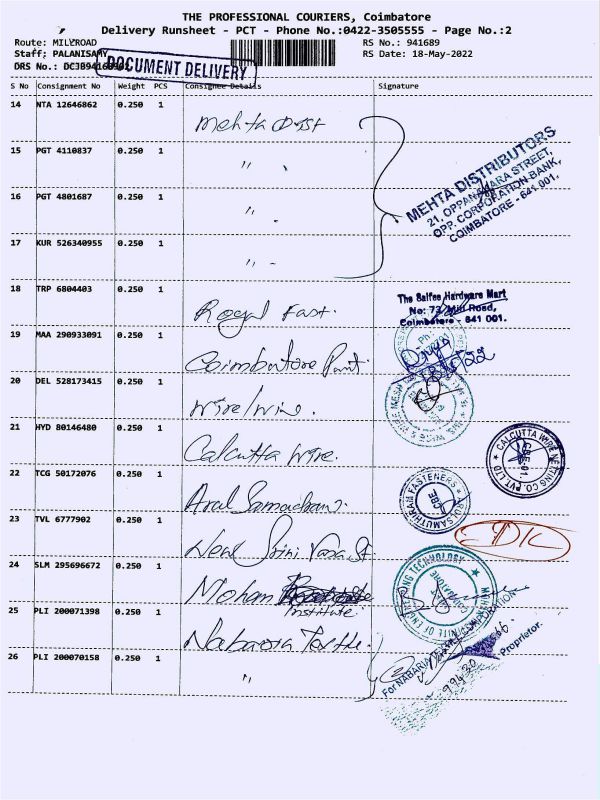 THE PROFESSIONAL COURIERS, Coimbatore
Delivery Runsheet - PCT - Phone No.:0422-3505555 - Page No.:2
Route: MILYROAD
RS No.: 941689
Staff; PALANISAMY
RS Date: 18-May-2022
DRS No.:
DOCUMENT DELIVERY
S No Consignment No Weight PCS Consignee Details Signature
14 NTA 12646862 0.250 1 Mehta Dist
15 PGT 4110837 0.250 1 "
16 PGT 4801687 0.250 1 "
17 KUR 526340955 0.250 1 "
MEHTA DISTRIBUTORS
21, OPPANAKARA STREET,
OPP. CORPORATION BANK,
COIMBATORE - 641 001.
18 TRP 6804403 0.250 1 Royal Fast.
The Saifee Hardware Mart
No: 73, Mill Road,
Coimbatore - 641 001.
19 MAA 290933091 0.250 1 Coimbatore Paint.
20 DEL 528173415 0.250 1 Wire/wine.
21 HYD 80146480 0.250 1 Calcutta Wire.
CALCUTTA WIRE NETTING CO. PVT. LTD
CBE-01.
22 TCG 50172076 0.250 1 Aral
FASTENERS
CBE
23 TVL 6777902 0.250 1 New Srini Vasa St
24 SLM 295696672 0.250 1 Mohan
Institute
UNITE OF ENGINEERING TECHNOLOGY
25 PLI 200071398 0.250 1
For NABARIA
Proprietor.
26 PLI 200070158 0.250 1 "
99430